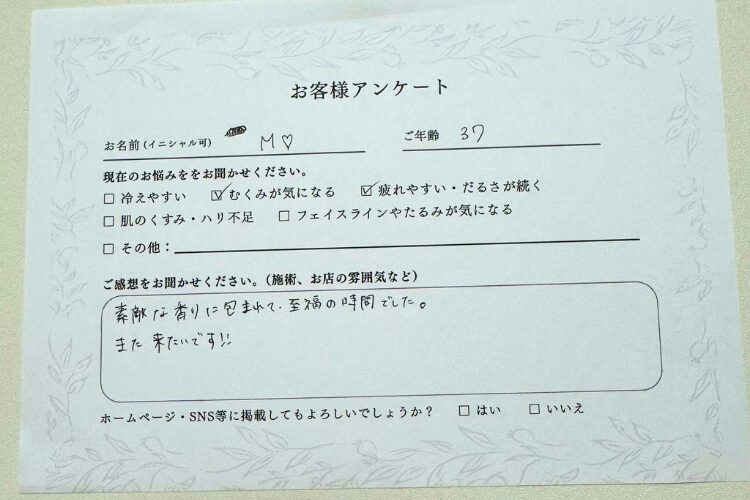 お客様アンケート
お名前(イニシャル可) M♡ ご年齢 37
現在のお悩みををお聞かせください。
□ 冷えやすい ☑ むくみが気になる ☑ 疲れやすい・だるさが続く
□ 肌のくすみ・ハリ不足 □ フェイスラインやたるみが気になる
□ その他：
ご感想をお聞かせください。(施術、お店の雰囲気など)
素敵な香りに包まれて、至福の時間でした。
また来たいです!!
ホームページ・SNS等に掲載してもよろしいでしょうか？ □ はい □ いいえ